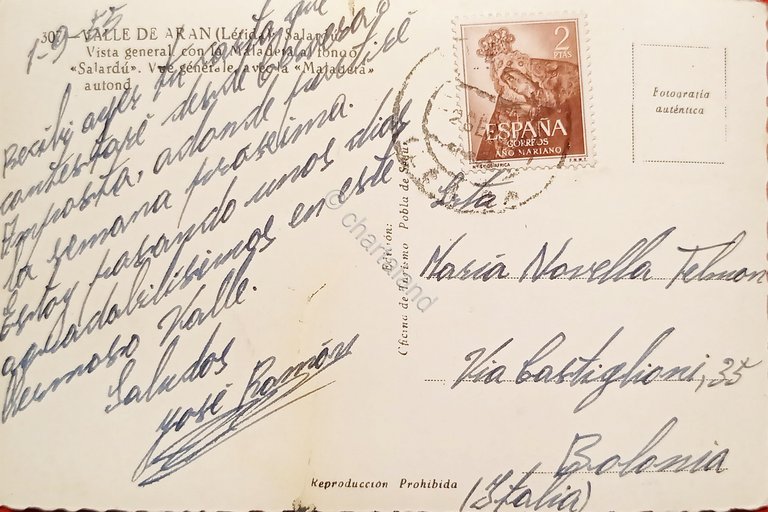 1-9-55
307 - VALLE DE ARAN (Lérida) Salardú
Vista general con la Maladeta al fondo
«Salardú». Vue générale avec la «Maladeta»
au fond
Recibí ayer tu carta que
contestaré desde
Amposta, adonde
la semana prosima.
Estoy pasando unos días
agradabilísimos en este
hermoso Valle.
Saludos
José Ramón
Edición:
Oficina de Turismo Pobla de Segur
Reproducción Prohibida
2
PTAS
ESPAÑA
CORREOS
AÑO MARIANO
F.N.M.T.
Fotografía
auténtica
Srta.
María Novella
Via Castiglioni, 35
Bolonia
(Italia)
© chartaland